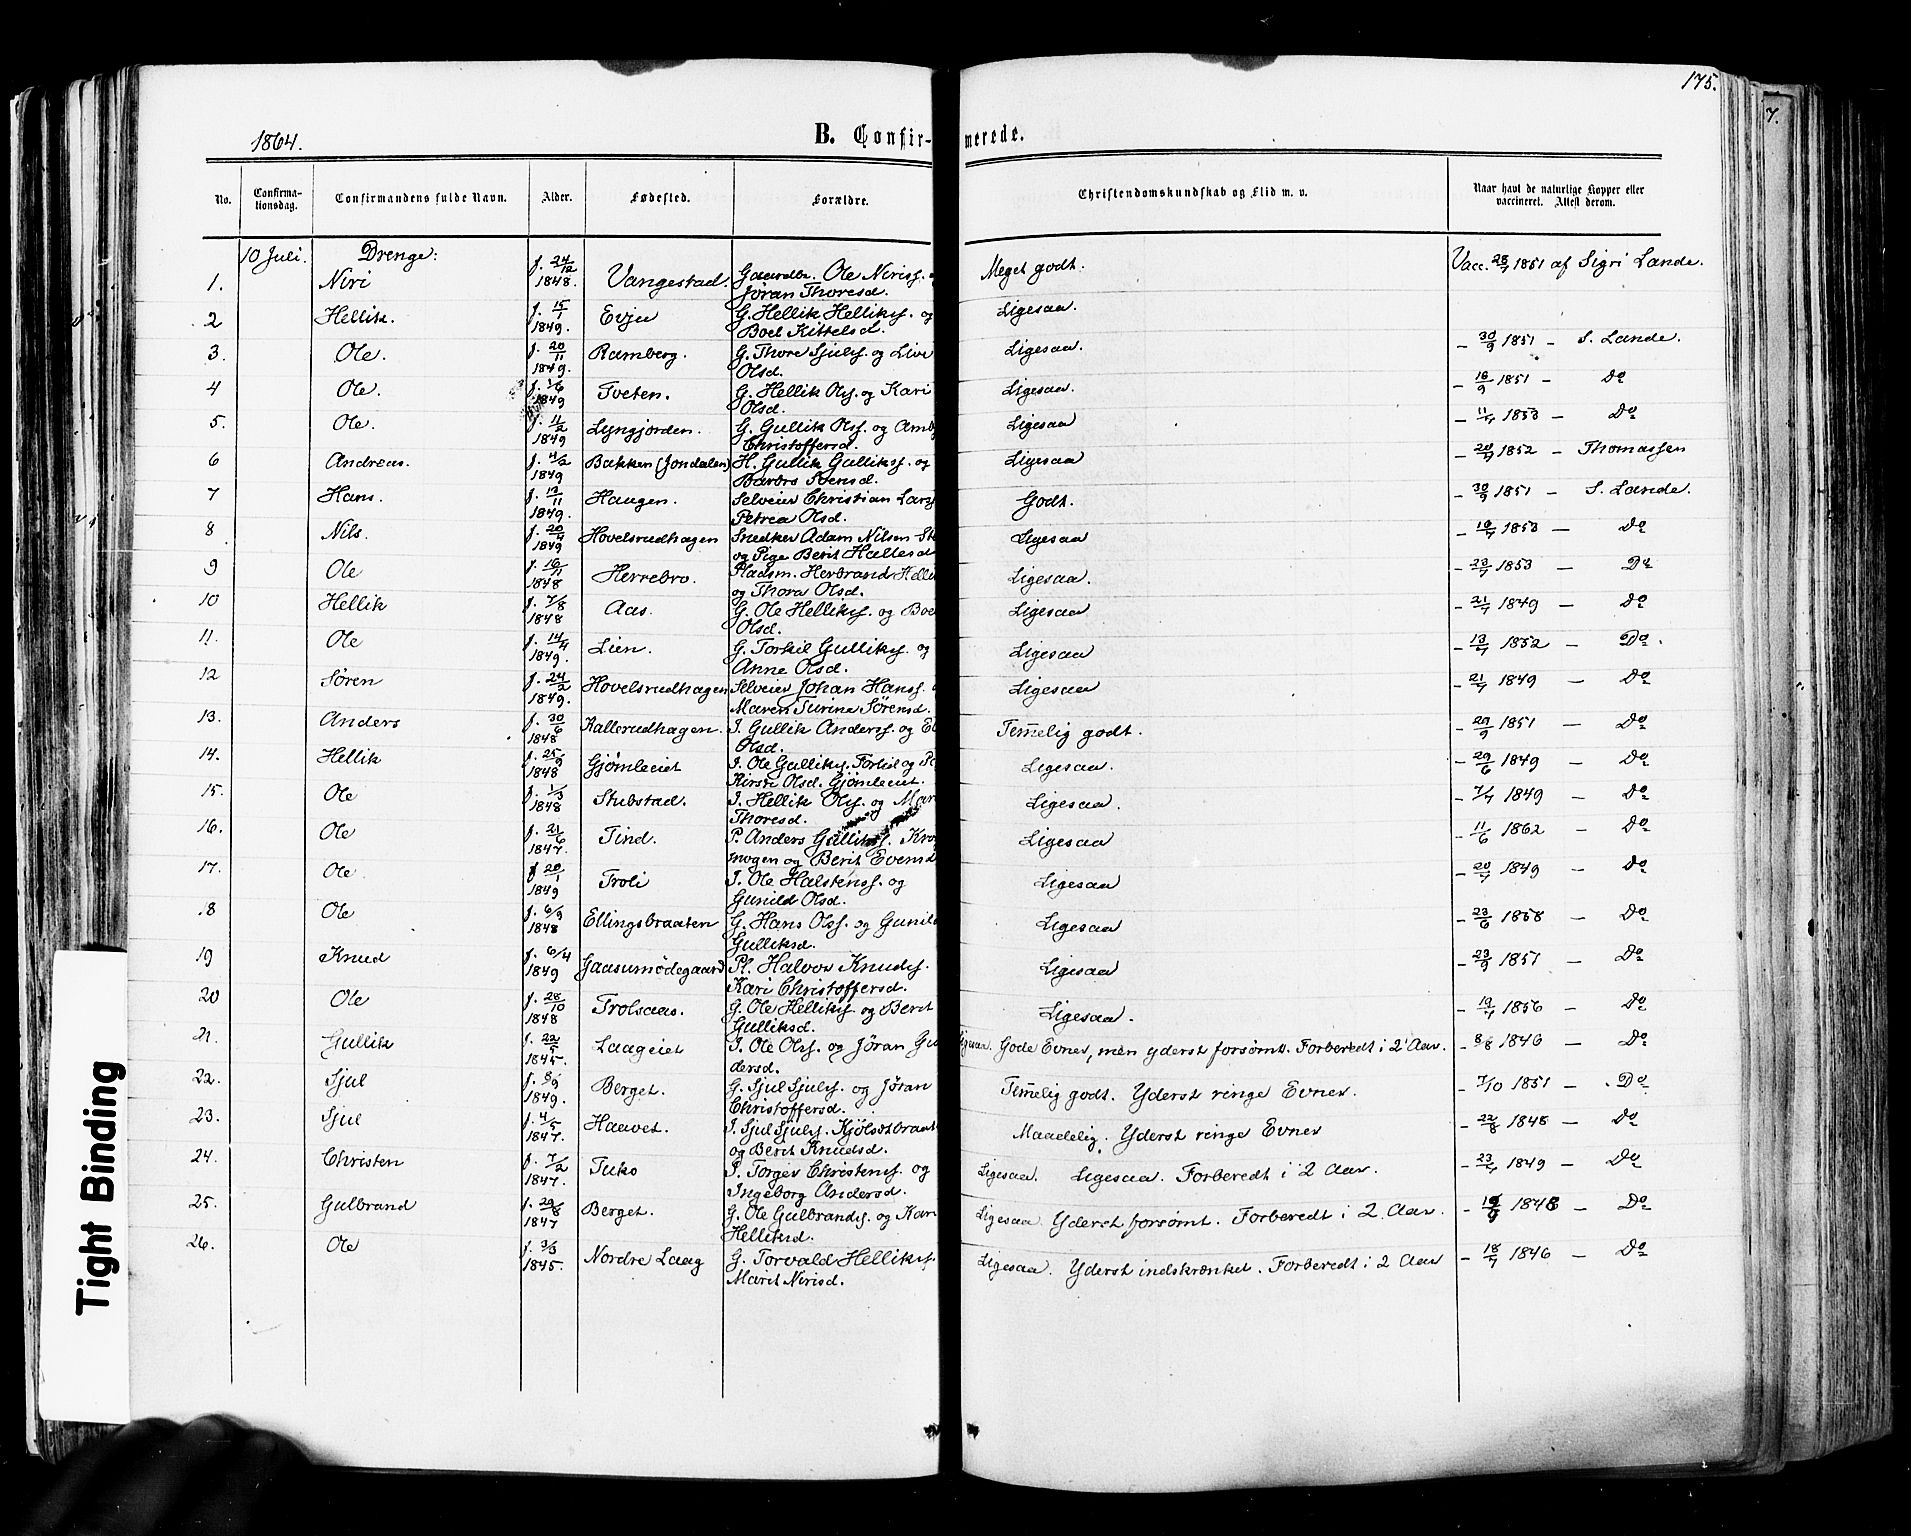 175.
7.
1864.
B. Confir-merede.
No. Confirma-tionsdag. Confirmandens fulde Navn. Alder. Fødested. Forældre. Christendomskundskab og Flid m. v. Naar havt de naturlige Kopper eller vaccineret. Attest derom.
10 Juli. Drenge:
1. Niri f. 24/12 1848. Vangestad. Gaardbr. Ole Niriss. Jøran Thoresd. Meget godt. Vacc. 28/7 1851 af Sigri Lande.
2 Hellik. f. 15/1 1849. Evju G. Hellik Helliks. og Boel Kittelsd. Ligesaa.
3. Ole. f. 20/11 1849. Ramberg. G. Thore Sjuls. og Live Olsd. Ligesaa. - 30/9 1851 - S. Lande.
4 Ole. f. 1/6 1849 Tveten. G. Hellik Ols. og Kari Olsd. Ligesaa. - 16/9 1851 - Do
5. Ole. f. 11/2 1849 Lyngjorden. G. Gullik Ols. og Christoffersd. Ligesaa - 11/7 1853 - Do
6 Andreas. f. 4/2 1849 Bakken (Jondalen) H. Gullik Galliks. og Barbro Svensd. Ligesaa - 20/7 1852 - Thomassen
7 Hans. f. 13/11 1849. Haugen. Selveier Christian Petrea Olsd. Godt. - 30/9 1851 - S. Lande.
8 Nils. f. 20/4 1849 Hovelsrudhagen Snedker Adam Nilsen og Pige Berit Hallesd Ligesaa - 19/7 1853 - Do
9 Ole f. 16/11 1848 Herrebro. Pladsm. Herbrand og Thora Olsd. Ligesaa. - 23/7 1853 - Do
10 Hellik f. 7/8 1848 Aas. G. Ole Helliks. og Olsd. Ligesaa. - 21/7 1849 - Do
11. Ole f. 14/4 1849. Lien. G. Torkil Gulliks. og Anne Olsd. Ligesaa - 13/7 1852 - Do.
12 Søren f. 24/2 1849. Hovelsrudhagen Selveier Johan Hanss. Maren Surine Sørensd. Ligesaa - 21/7 1849 - Do
13. Anders f. 30/6 1848 Kallerudhagen. I. Gullik Anderss. og Olsd. Temelig godt. - 29/9 1851 - Do
14. Hellik f. 25/9 1848 Gjømleeiet I. Ole Gulliks. Kirsti Olsd. Gjømleeiet. Ligesaa. - 29/6 1849 - Do
15. Ole f. 1/3 1848 Stubstad. I. Hellik Ols. og Thoresd. Ligesaa. - 7/7 1849 - Do
16. Ole f. 21/6 1847. Tind. P. Anders Gulliks. mogen og Berit Evensd Ligesaa - 11/6 1862 - Do
17. Ole f. 20/1 1849 Troli I. Ole Halstens. og Gunild Olsd. Ligesaa - 20/7 1849 - Do
18 Ole f. 6/9 1848 Ellingsbraaten G. Hans Ols. og Gunild Gulliksd. Ligesaa - 23/6 1858 - Do
19 Knud f. 6/4 1849 Gaasumødegaard Pl. Halvor Knuds. Kari Christoffersd. Ligesaa - 23/9 1851 - Do
20 Ole f. 28/10 1848 Trolsaas. G. Ole Helliks. og Berit Gulliksd. Ligesaa. - 19/7 1856 - Do
21. Gullik f. 22/5 1845. Laageiet I. Ole Ols. og Jøran dersd. Ligesaa. Gode Evner, men yderst forsømt. Forberedt i 2 Aar. - 8/8 1846 - Do
22. Sjul f. 8/9 1849. Berget. G. Sjul Sjuls. og Jøran Christoffersd. Temelig godt. Yderst ringe Evner. - 7/10 1851 - Do
23. Sjul f. 4/5 1847. Haavet. I. Sjul Sjuls. og Berit Knudsd. Maadelig. Yderst ringe Evner - 22/8 1848 - Do
24. Christen f. 7/2 1847. Tuko I. Torger Christens. og Ingeborg Andersd. Ligesaa. Ligesaa. Forberedt i 2 Aar. - 23/7 1849 - Do
25. Gulbrand f. 29/8 1847 Berget. G. Ole Gulbrands. og Kari Helliksd. Ligesaa. Yderst forsømt. Forberedt i 2 Aar. 1848 - Do
26. Ole f. 3/3 1845. Nordre Laag G. Torvald Helliks. Marit Nirisd. Ligesaa. Yderst indskrænket. Forberedt i 2 Aar - 18/7 1846 - Do
Tight Binding